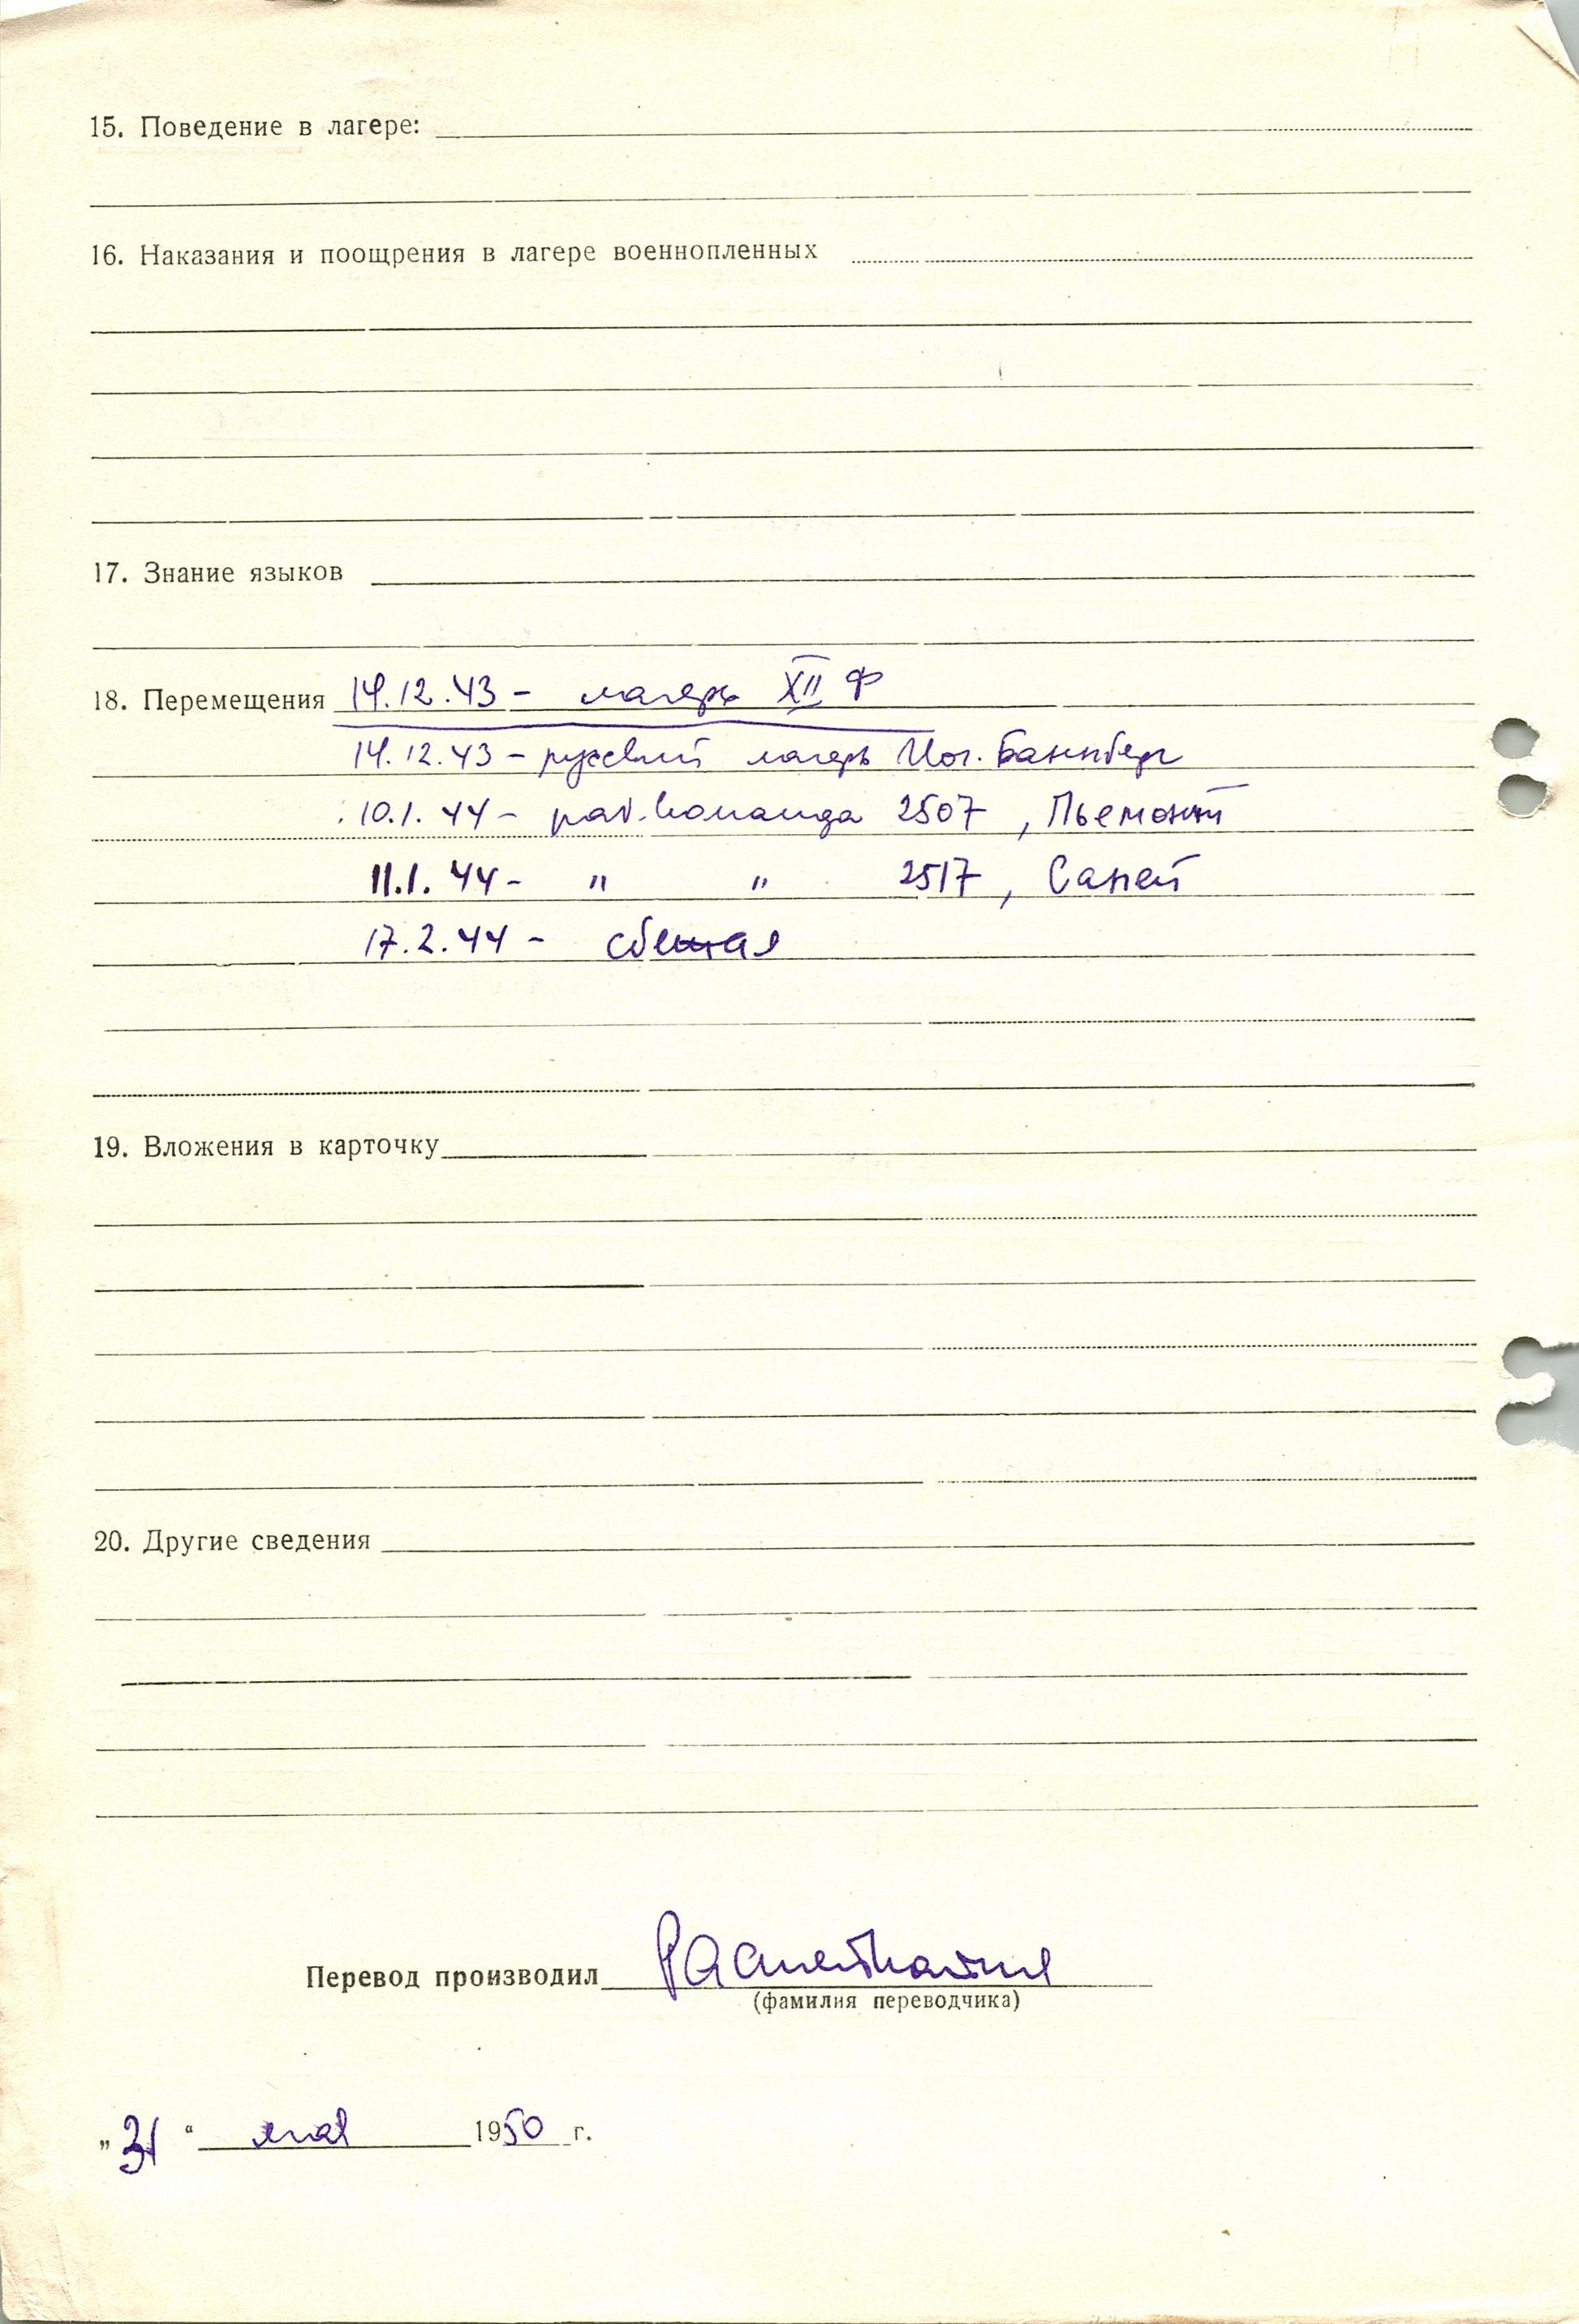 15. Поведение в лагере:
16. Наказания и поощрения в лагере военнопленных
17. Знание языков
18. Перемещения 14.12.43 – лагерь XII Ф
14.12.43 – русский лагерь Иог. Баннберг
10.1.44 – раб. команда 2507, Пьемонт
11.1.44 – " " 2517, Саней
17.2.44 – сбежал
19. Вложения в карточку
20. Другие сведения
Перевод производил
(фамилия переводчика)
„31“ мая 1950 г.